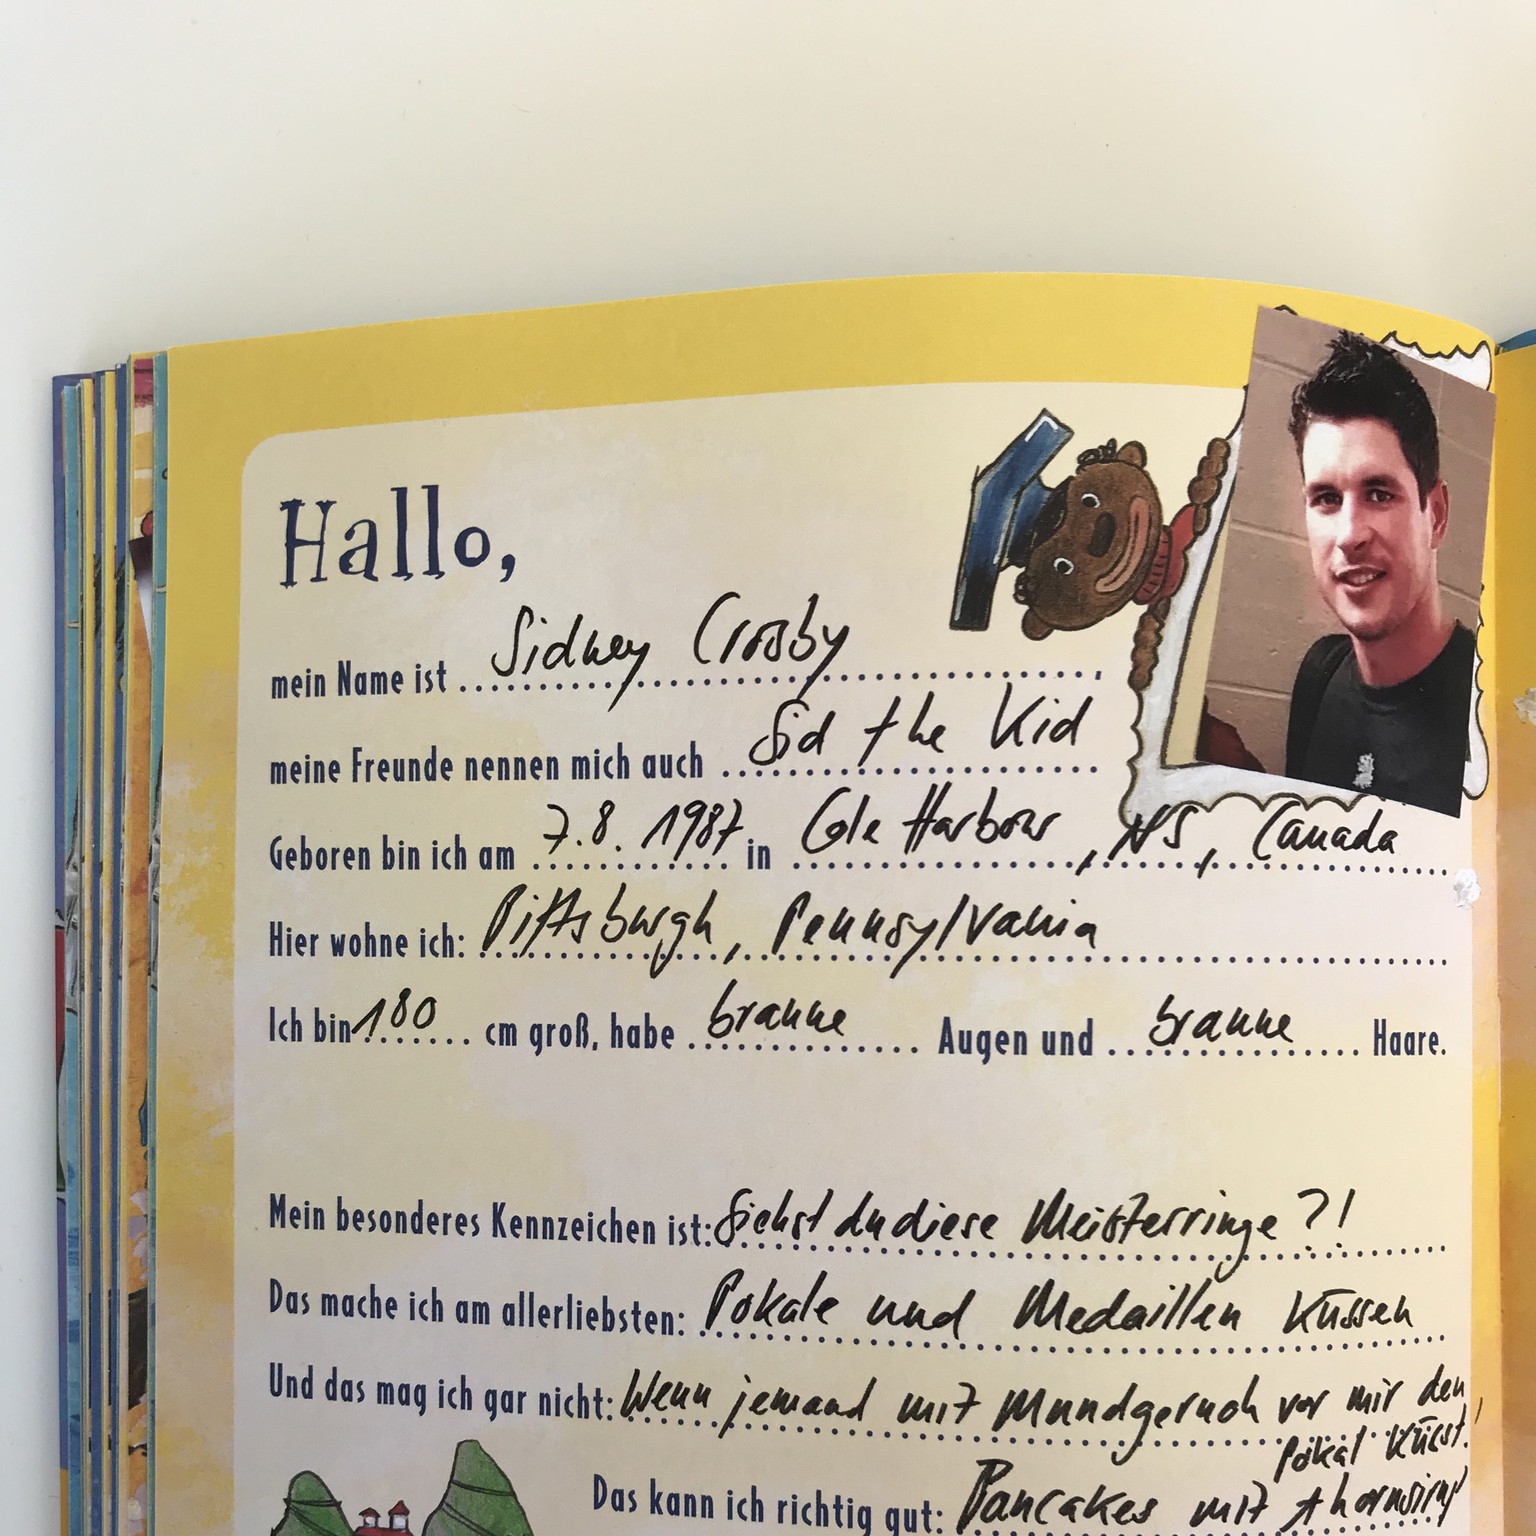 Hallo,
mein Name ist Sidney Crosby,
meine Freunde nennen mich auch Sid the Kid
Geboren bin ich am 7.8.1987 in Cole Harbour, NS, Canada
Hier wohne ich: Pittsburgh, Pennsylvania
Ich bin 180 cm groß, habe braune Augen und braune Haare.
Mein besonderes Kennzeichen ist: Siehst du diese Meisterringe?!
Das mache ich am allerliebsten: Pokale und Medaillen küssen
Und das mag ich gar nicht: Wenn jemand mit Mundgeruch vor mir den
Pokal küsst!
Das kann ich richtig gut: Pancakes mit Ahornsirup